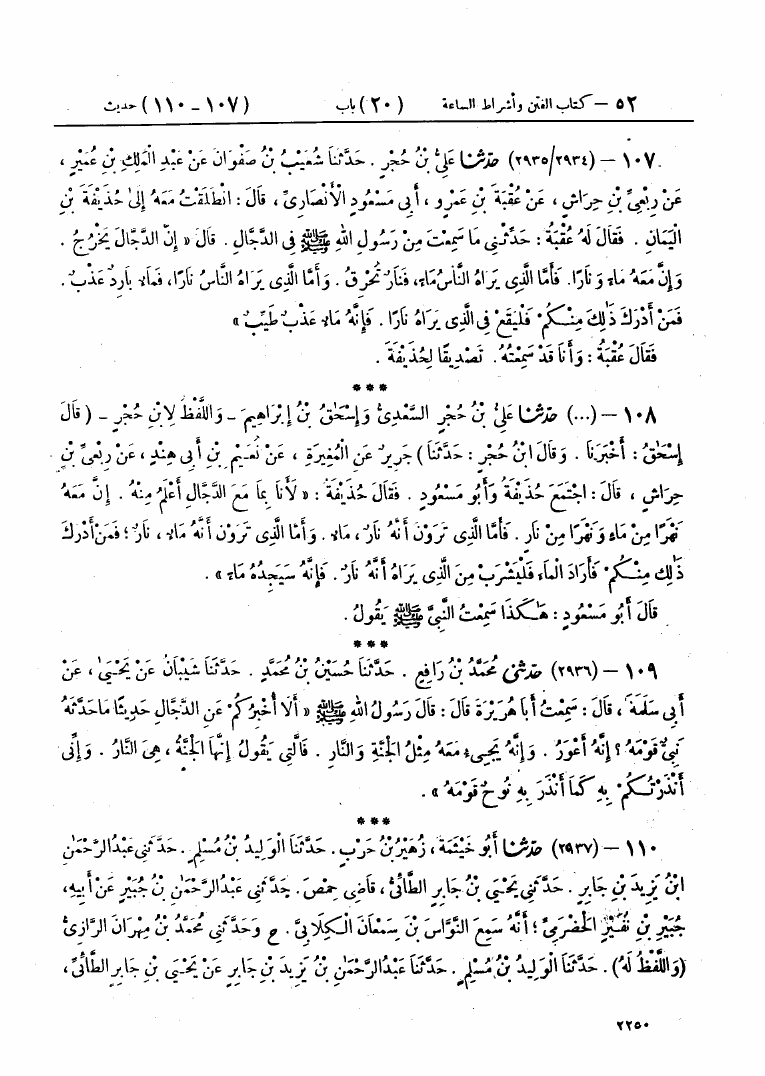 ٥٢ – كتاب الفتن وأشراط الساعة (٢٠) باب (١٠٧ – ١١٠) حديث
١٠٧ – (٢٩٣٤/٢٩٣٥) حَدَّثَنَا عَلِيُّ بْنُ حُجْرٍ . حَدَّثَنَا شُعَيْبُ بْنُ صَفْوَانَ عَنْ عَبْدِ الْمَلِكِ بْنِ عُمَيْرٍ ،
عَنْ رِبْعِيِّ بْنِ حِرَاشٍ ، عَنْ عُقْبَةَ بْنِ عَمْرٍو ، أَبِي مَسْعُودٍ الْأَنْصَارِيِّ ، قَالَ : انْطَلَقْتُ مَعَهُ إِلَىٰ حُذَيْفَةَ بْنِ
الْيَمَانِ . فَقَالَ لَهُ عُقْبَةُ : حَدِّثْنِي مَا سَمِعْتَ مِنْ رَسُولِ اللهِ ﷺ فِي الدَّجَّالِ . قَالَ « إِنَّ الدَّجَّالَ يَخْرُجُ .
وَإِنَّ مَعَهُ مَاءً وَنَارًا. فَأَمَّا الَّذِي يَرَاهُ النَّاسُ مَاءً، فَنَارٌ تُحْرِقُ . وَأَمَّا الَّذِي يَرَاهُ النَّاسُ نَارًا، فَمَاءٌ بَارِدٌ عَذْبٌ .
فَمَنْ أَدْرَكَ ذَٰلِكَ مِنْكُمْ فَلْيَقَعْ فِي الَّذِي يَرَاهُ نَارًا . فَإِنَّهُ مَاءٌ عَذْبٌ طَيِّبٌ »
فَقَالَ عُقْبَةُ : وَأَنَا قَدْ سَمِعْتُهُ. تَصْدِيقًا لِحُذَيْفَةَ .
***
١٠٨ – (...) حَدَّثَنَا عَلِيُّ بْنُ حُجْرٍ السَّعْدِيُّ وَإِسْحَٰقُ بْنُ إِبْرَاهِيمَ – وَاللَّفْظُ لِابْنِ حُجْرٍ – ( قَالَ
إِسْحَٰقُ : أَخْبَرَنَا . وَقَالَ ابْنُ حُجْرٍ : حَدَّثَنَا ) جَرِيرٌ عَنِ الْمُغِيرَةِ ، عَنْ نُعَيْمِ بْنِ أَبِي هِنْدٍ ، عَنْ رِبْعِيِّ بْنِ
حِرَاشٍ ، قَالَ : اجْتَمَعَ حُذَيْفَةُ وَأَبُو مَسْعُودٍ . فَقَالَ حُذَيْفَةُ : « لَأَنَا بِمَا مَعَ الدَّجَّالِ أَعْلَمُ مِنْهُ . إِنَّ مَعَهُ
نَهْرًا مِنْ مَاءٍ وَنَهْرًا مِنْ نَارٍ . فَأَمَّا الَّذِي تَرَوْنَ أَنَّهُ نَارٌ ، مَاءٌ . وَأَمَّا الَّذِي تَرَوْنَ أَنَّهُ مَاءٌ ، نَارٌ ؛ فَمَنْ أَدْرَكَ
ذَٰلِكَ مِنْكُمْ فَأَرَادَ الْمَاءَ فَلْيَشْرَبْ مِنَ الَّذِي يَرَاهُ أَنَّهُ نَارٌ . فَإِنَّهُ سَيَجِدُهُ مَاءً » .
قَالَ أَبُو مَسْعُودٍ : هَٰكَذَا سَمِعْتُ النَّبِيَّ ﷺ يَقُولُ .
***
١٠٩ – (٢٩٣٦) حَدَّثَنِي مُحَمَّدُ بْنُ رَافِعٍ . حَدَّثَنَا حُسَيْنُ بْنُ مُحَمَّدٍ . حَدَّثَنَا شَيْبَانُ عَنْ يَحْيَىٰ ، عَنْ
أَبِي سَلَمَةَ ، قَالَ : سَمِعْتُ أَبَا هُرَيْرَةَ قَالَ : قَالَ رَسُولُ اللهِ ﷺ « أَلَا أُخْبِرُكُمْ عَنِ الدَّجَّالِ حَدِيثًا مَا حَدَّثَهُ
نَبِيٌّ قَوْمَهُ ؟ إِنَّهُ أَعْوَرُ . وَإِنَّهُ يَجِيءُ مَعَهُ مِثْلُ الْجَنَّةِ وَالنَّارِ . فَالَّتِي يَقُولُ إِنَّهَا الْجَنَّةُ ، هِيَ النَّارُ . وَإِنِّي
أَنْذَرْتُكُمْ بِهِ كَمَا أَنْذَرَ بِهِ نُوحٌ قَوْمَهُ » .
***
١١٠ – (٢٩٣٧) حَدَّثَنَا أَبُو خَيْثَمَةَ ، زُهَيْرُ بْنُ حَرْبٍ . حَدَّثَنَا الْوَلِيدُ بْنُ مُسْلِمٍ . حَدَّثَنِي عَبْدُ الرَّحْمَٰنِ
ابْنُ يَزِيدَ بْنِ جَابِرٍ . حَدَّثَنِي يَحْيَىٰ بْنُ جَابِرٍ الطَّائِيُّ ، قَاضِي حِمْصَ . حَدَّثَنِي عَبْدُ الرَّحْمَٰنِ بْنُ جُبَيْرٍ عَنْ أَبِيهِ،
جُبَيْرِ بْنِ نُفَيْرٍ الْحَضْرَمِيِّ ؛ أَنَّهُ سَمِعَ النَّوَّاسَ بْنَ سَمْعَانَ الْكِلَابِيَّ . ح وَحَدَّثَنِي مُحَمَّدُ بْنُ مِهْرَانَ الرَّازِيُّ
(وَاللَّفْظُ لَهُ) . حَدَّثَنَا الْوَلِيدُ بْنُ مُسْلِمٍ . حَدَّثَنَا عَبْدُ الرَّحْمَٰنِ بْنُ يَزِيدَ بْنِ جَابِرٍ عَنْ يَحْيَىٰ بْنِ جَابِرٍ الطَّائِيِّ،
٢٢٥٠